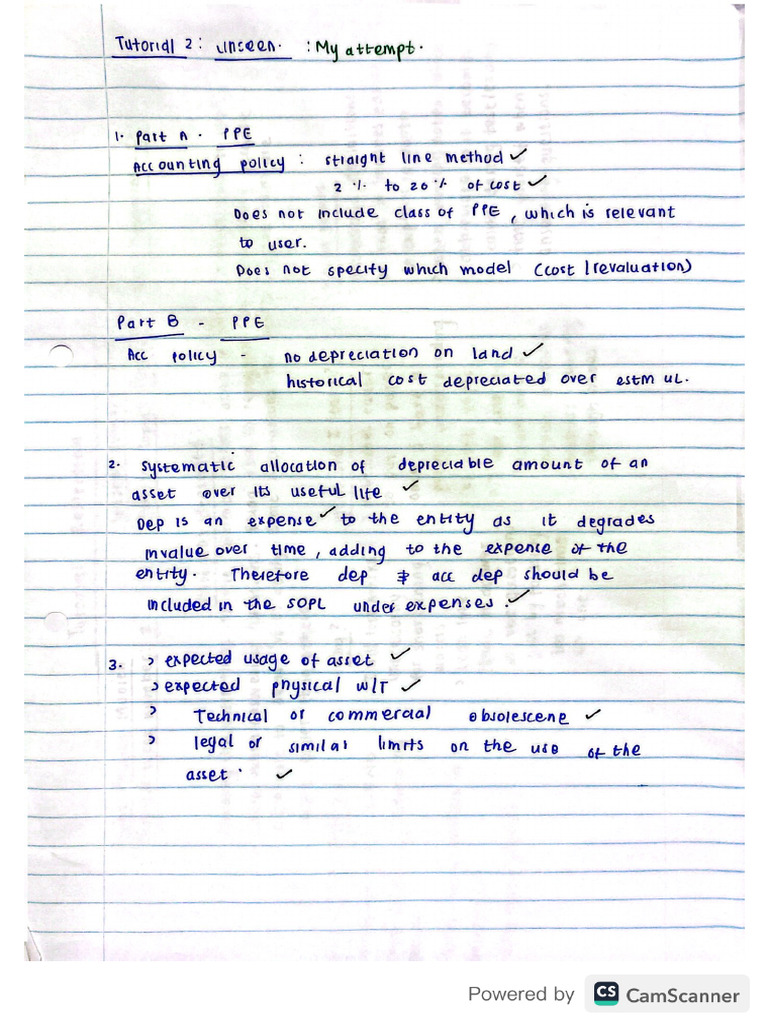 Tutorial 2: unseen. : My attempt.
1. Part A. PPE
Accounting policy : straight line method ✓
2 % to 20 % of cost ✓
Does not include class of PPE, which is relevant
to user.
Does not specify which model (cost / revaluation)
Part B - PPE
Acc policy - no depreciation on land ✓
historical cost depreciated over estm UL.
2. systematic allocation of depreciable amount of an
asset over its useful life ✓
Dep is an expense ✓ to the entity as it degrades
invalue over time, adding to the expense of the
entity. Therefore dep & acc dep should be
included in the SOPL under expenses. ✓
3. > expected usage of asset ✓
> expected physical W/T ✓
> Technical or commercial obsolescene ✓
> legal or similar limits on the use of the
asset. ✓
Powered by CS CamScanner